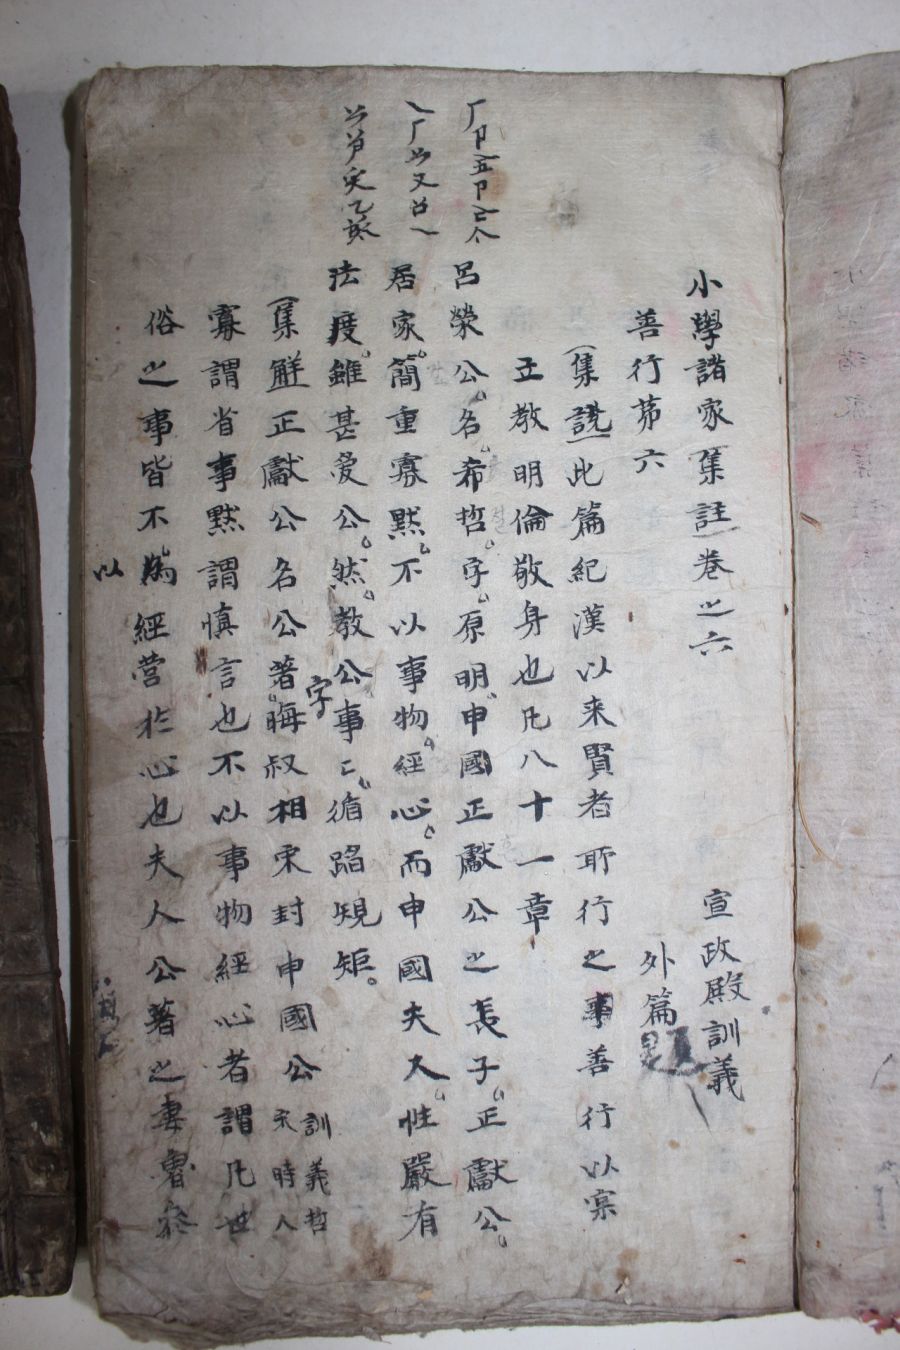 小學諸家集註卷之六 宣政殿訓義
善行苐六 外篇
集說此篇紀漢以来賢者所行之事善行以宲
立教明倫敬身也凡八十一章
呂榮公名希哲字原明申國正獻公之長子正獻公
居家簡重寡黙不以事物經心而申國夫人性嚴有
法度雖甚爱公然教公事〻循蹈规矩
集觧正獻公名公著字晦叔相宋封申國公訓義哲宗時人
寡謂省事黙謂慎言也不以事物經心者謂凡世
俗之事皆不以爲經营於心也夫人公著之妻魯叅